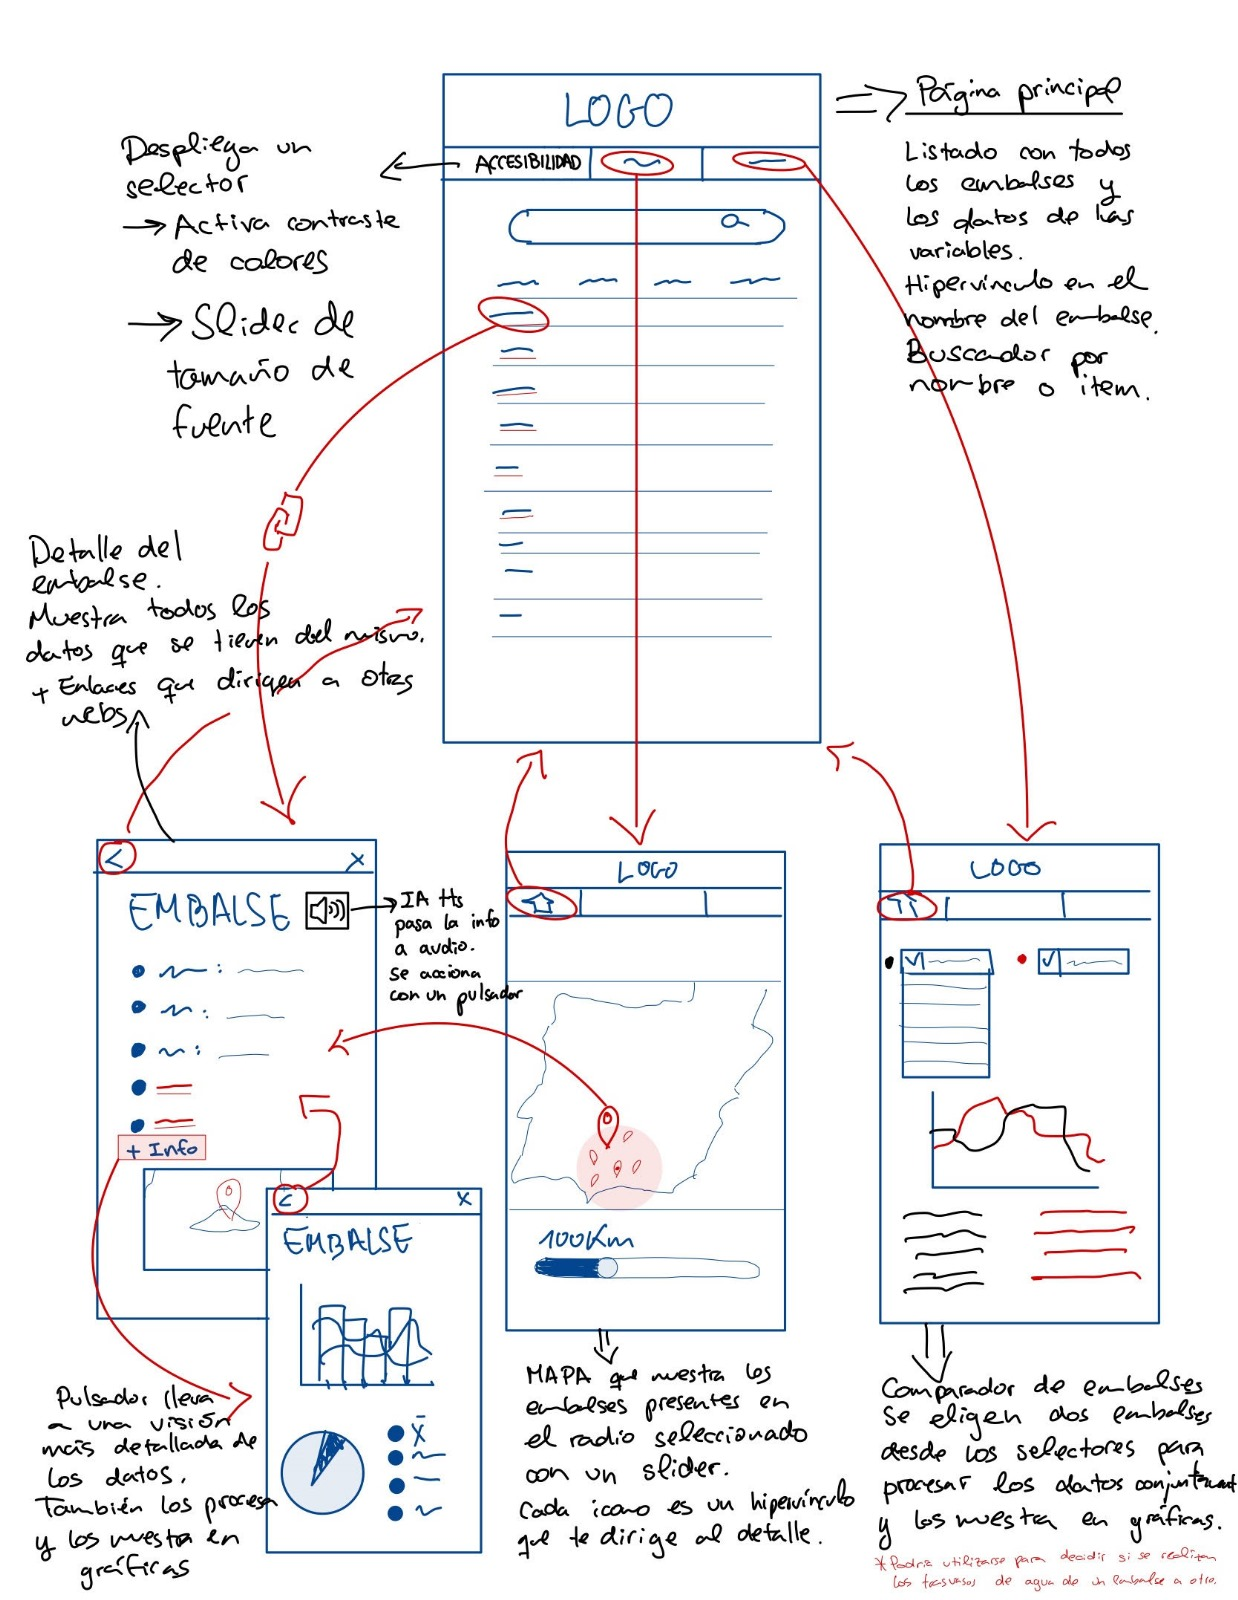 LOGO
ACCESIBILIDAD
Página principal
Listado con todos
los embalses y
los datos de las
variables.
Hipervínculo en el
nombre del embalse.
Buscador por
nombre o item.
Despliega un
selector
→ Activa contraste
de colores
→ Slider de
tamaño de
fuente
Detalle del
embalse.
Muestra todos los
datos que se tienen del mismo.
+ Enlaces que dirigen a otras
webs
< X
EMBALSE
IA tts
pasa la info
a audio.
se acciona
con un pulsador
+ Info
< X
EMBALSE
X̄
Pulsador lleva
a una visión
más detallada de
los datos.
También los procesa
y los muestra en
gráficas
LOGO
100Km
MAPA que muestra los
embalses presentes en
el radio seleccionado
con un slider.
Cada icono es un hipervínculo
que te dirige al detalle.
LOGO
Comparador de embalses
Se eligen dos embalses
desde los selectores para
procesar los datos conjuntament
y los muestra en gráficas.
*Podría utilizarse para decidir si se realizan
los trasvasos de agua de un embalse a otro.